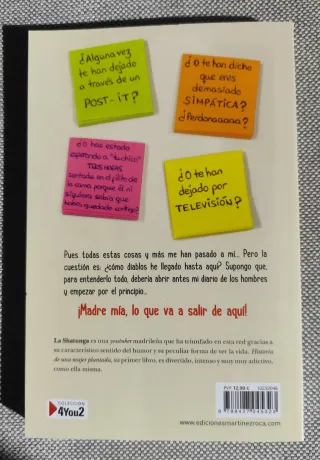 ¿Alguna vez
te han dejado
a través de un
POST-IT?
¿O te han dicho
que eres
demasiado
SIMPÁTICA?
¿Perdonaaaa?
¿O has estado
esperando a "tu chico"
TRES HORAS
sentada en el pilto de
la cama porque él ni
siquiera sabía que
habías quedado contigo?
¿O te han
dejado por
TELEVISIÓN?
Pues todas estas cosas y más me han pasado a mí... Pero la
cuestión es: ¿cómo diablos he llegado hasta aquí? Supongo que,
para entenderlo todo, debería abrir antes mi diario de los hombres
y empezar por el principio...
¡Madre mía, lo que va a salir de aquí!
La Shatunga es una youtuber madrileña que ha triunfado en esta red gracias a
su característico sentido del humor y su peculiar forma de ver la vida. Historia
de una mujer plantada, su primer libro, es divertido, intenso y muy muy adictivo,
como ella misma.
COLECCIÓN
4You2
PVP 12,90 €
10232046
www.edicionesmartinezroca.com